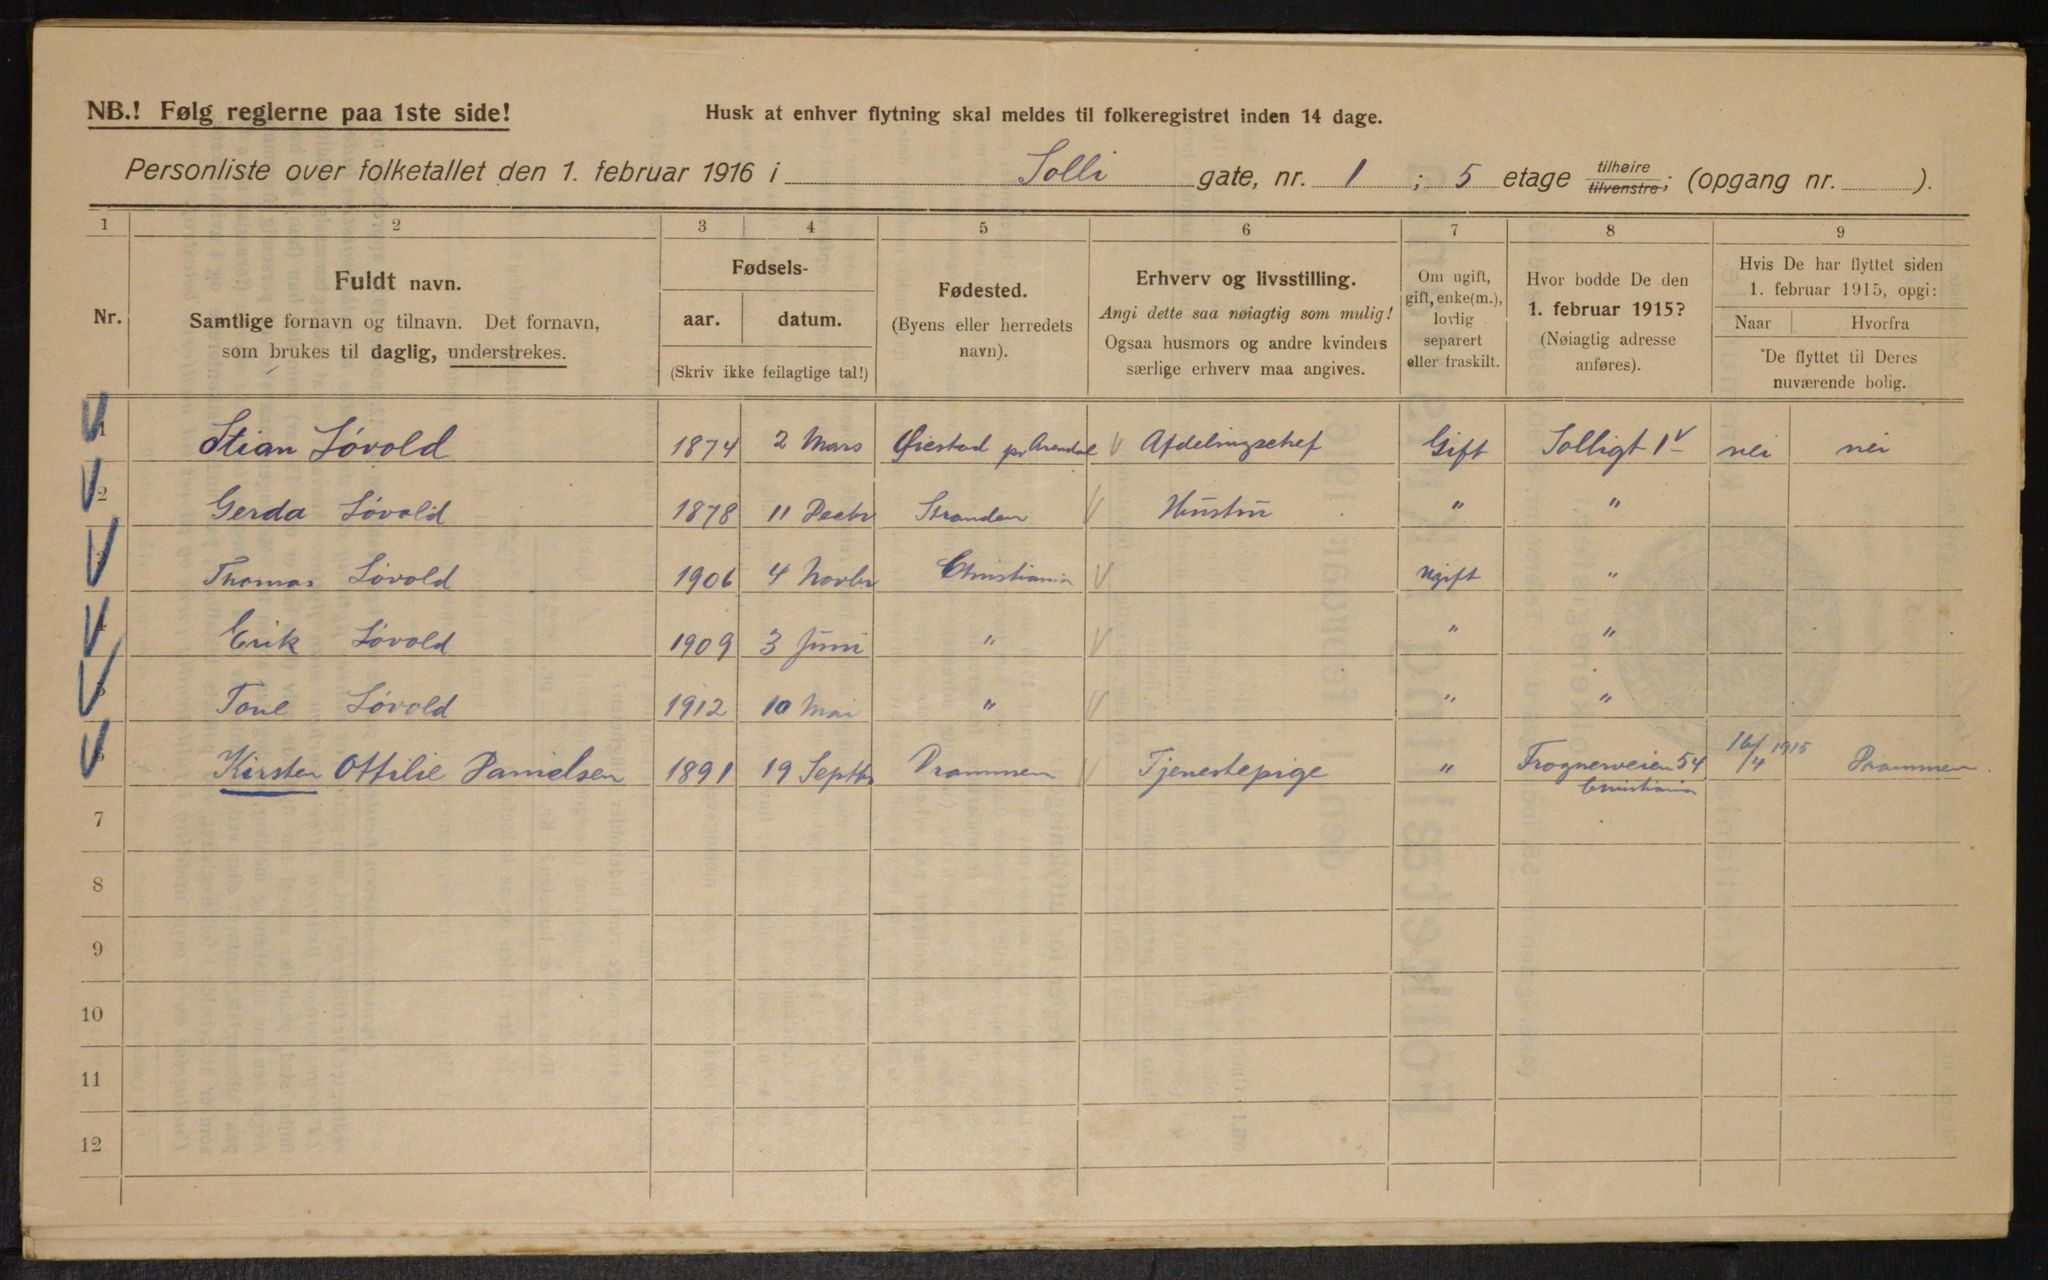 NB.! Følg reglerne paa 1ste side!
Husk at enhver flytning skal meldes til folkeregistret inden 14 dage.
Personliste over folketallet den 1. februar 1916 i Solli gate, nr. 1 ; 5 etage tilhøire tilvenstre; (opgang nr. ).
1 2 3 4 5 6 7 8 9
Nr.
Fuldt navn.
Samtlige fornavn og tilnavn. Det fornavn,
som brukes til daglig, understrekes.
Fødsels-
aar. datum.
(Skriv ikke feilagtige tal!)
Fødested.
(Byens eller herredets
navn).
Erhverv og livsstilling.
Angi dette saa nøiagtig som mulig!
Ogsaa husmors og andre kvinders
særlige erhverv maa angives.
Om ugift,
gift, enke(m.),
lovlig
separert
eller fraskilt.
Hvor bodde De den
1. februar 1915?
(Nøiagtig adresse
anføres).
Hvis De har flyttet siden
1. februar 1915, opgi:
Naar Hvorfra
De flyttet til Deres
nuværende bolig.
1 Stian Løvold 1874 2 Mars Øiestad pr Arendal Afdelingschef Gift Solligt 1 nei nei
2 Gerda Løvold 1878 11 Decbr Stranden Hustru " "
3 Thomas Løvold 1906 4 Novbr Christiania ugift "
4 Erik Løvold 1909 3 Juni " " "
5 Tone Løvold 1912 10 Mai " " "
6 Kirsten Ottilie Danielsen 1891 19 Septbr Drammen Tjenestepige " Frognerveien 54 16/4 1915 Drammen
Christiania
7
8
9
10
11
12